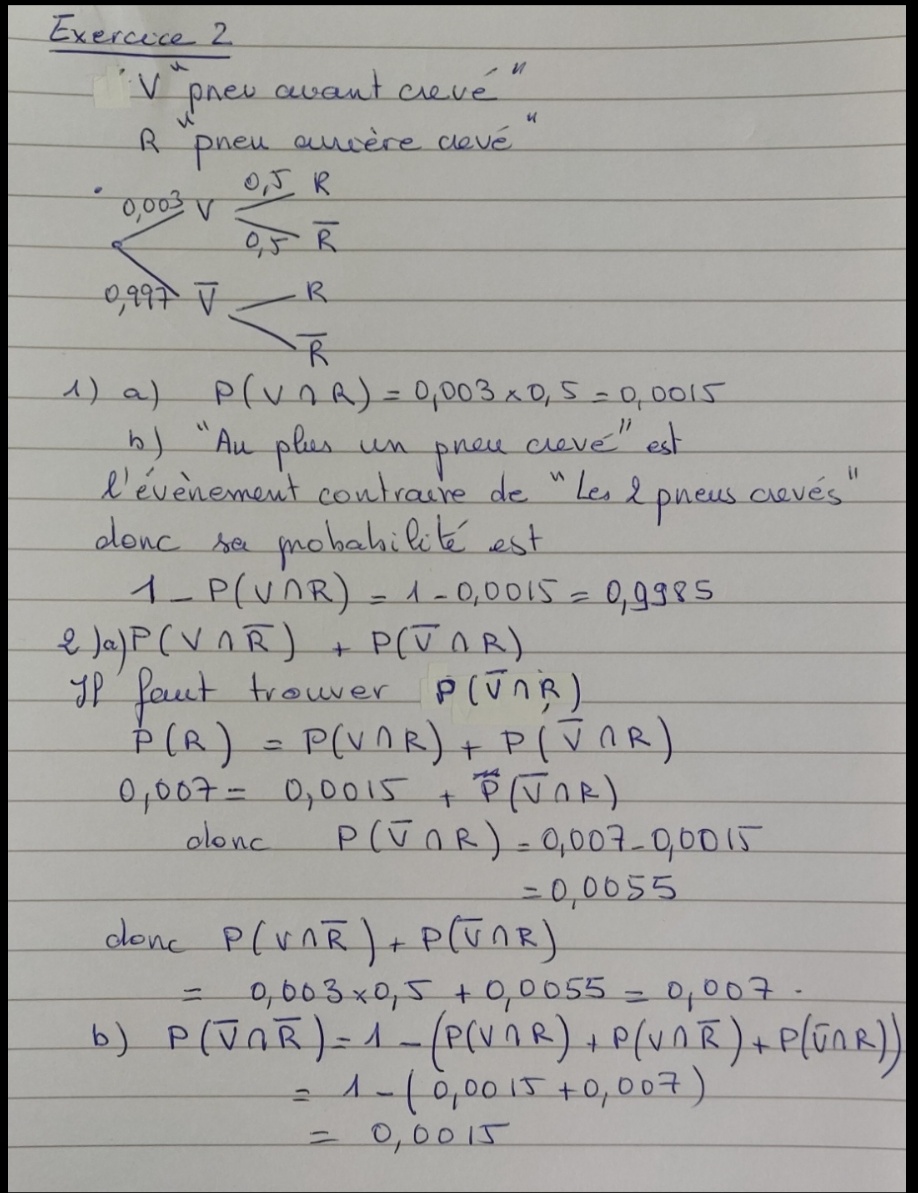 Exercice 2
V "pneu avant crevé"
R "pneu arrière crevé"
0,003 V 0,5 R
0,5 R̅
0,997 V̅ R
R̅
1) a) P(V ∩ R) = 0,003 × 0,5 = 0,0015
b) "Au plus un pneu crevé" est
l'évènement contraire de "Les 2 pneus crevés"
donc sa probabilité est
1 - P(V ∩ R) = 1 - 0,0015 = 0,9985
2) a) P(V ∩ R̅) + P(V̅ ∩ R)
Il faut trouver P(V̅ ∩ R)
P(R) = P(V ∩ R) + P(V̅ ∩ R)
0,007 = 0,0015 + P(V̅ ∩ R)
donc P(V̅ ∩ R) = 0,007 - 0,0015
= 0,0055
donc P(V ∩ R̅) + P(V̅ ∩ R)
= 0,003 × 0,5 + 0,0055 = 0,007.
b) P(V̅ ∩ R̅) = 1 - (P(V ∩ R) + P(V ∩ R̅) + P(V̅ ∩ R))
= 1 - (0,0015 + 0,007)
= 0,0015